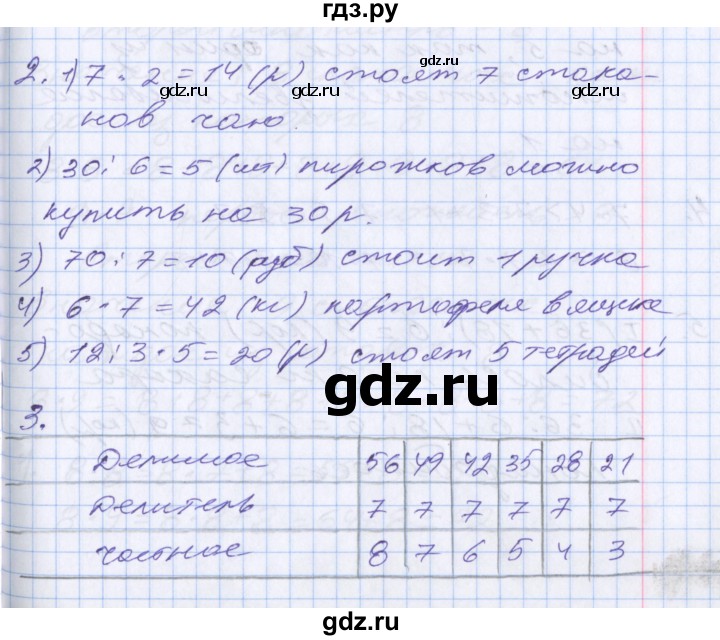 гдз.ру
2. 1) 7 · 2 = 14 (р) стоят 7 стака-
gdz.ru gdz.ru gdz.ru
нов чаю.
2) 30 : 6 = 5 (шт) пирожков можно
gdz.ru gdz.ru
купить на 30 р.
3) 70 : 7 = 10 (руб) стоит 1 ручка
4) 6 · 7 = 42 (кг) картофеля в ящике
5) 12 : 3 · 5 = 20 (р) стоят 5 тетрадей
gdz.ru
3.
Делимое 56 49 42 35 28 21
gdz.ru gdz.ru
Делитель 7 7 7 7 7 7
частное 8 7 6 5 4 3
gdz.ru gdz.ru
gdz.ru